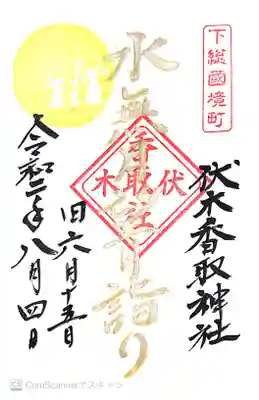 下総國境町
伏木香取神社
水無月 詣り
伏木
香取社
旧六月十五日
令和二年八月四日
CamScannerでスキャン